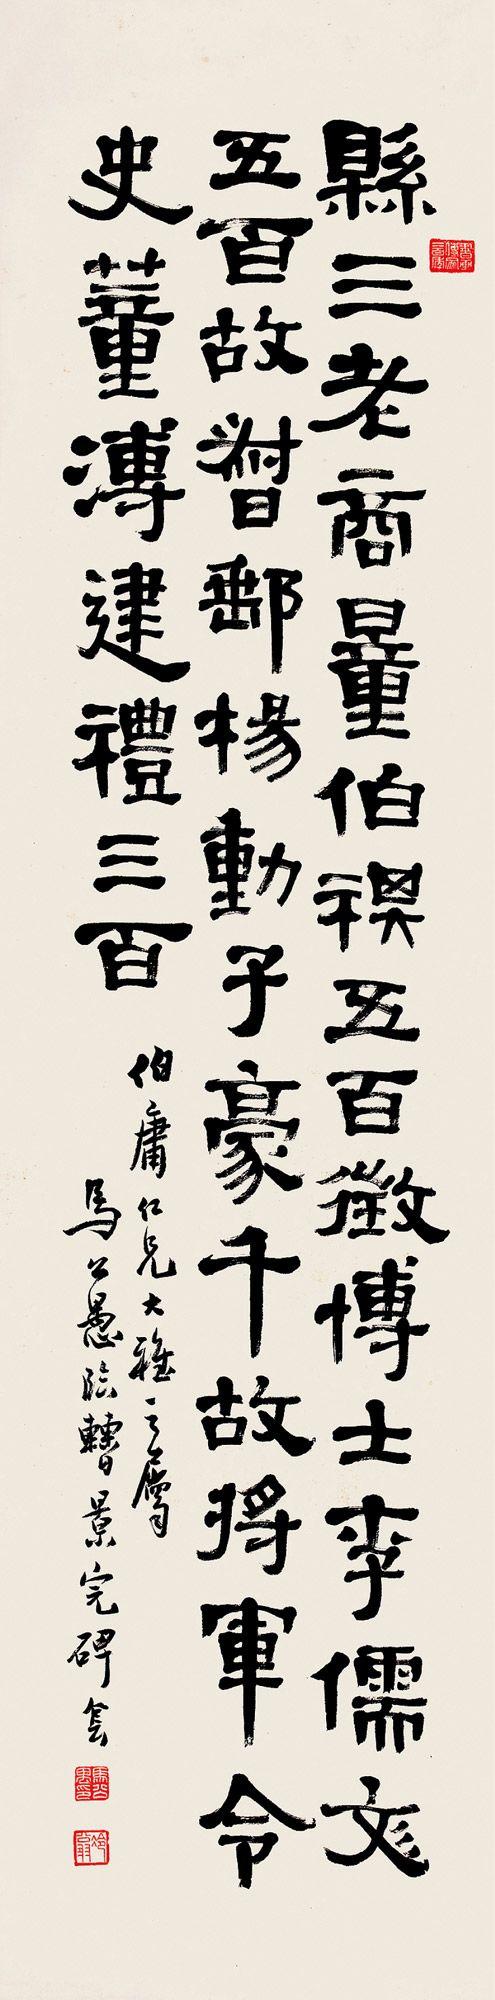 縣三老商量伯祺五百徵博士李儒文
五百故督郵楊動子豪千故將軍令
史董溥建禮三百
伯庸仁兄大雅之屬
馬公愚臨曹景完碑会